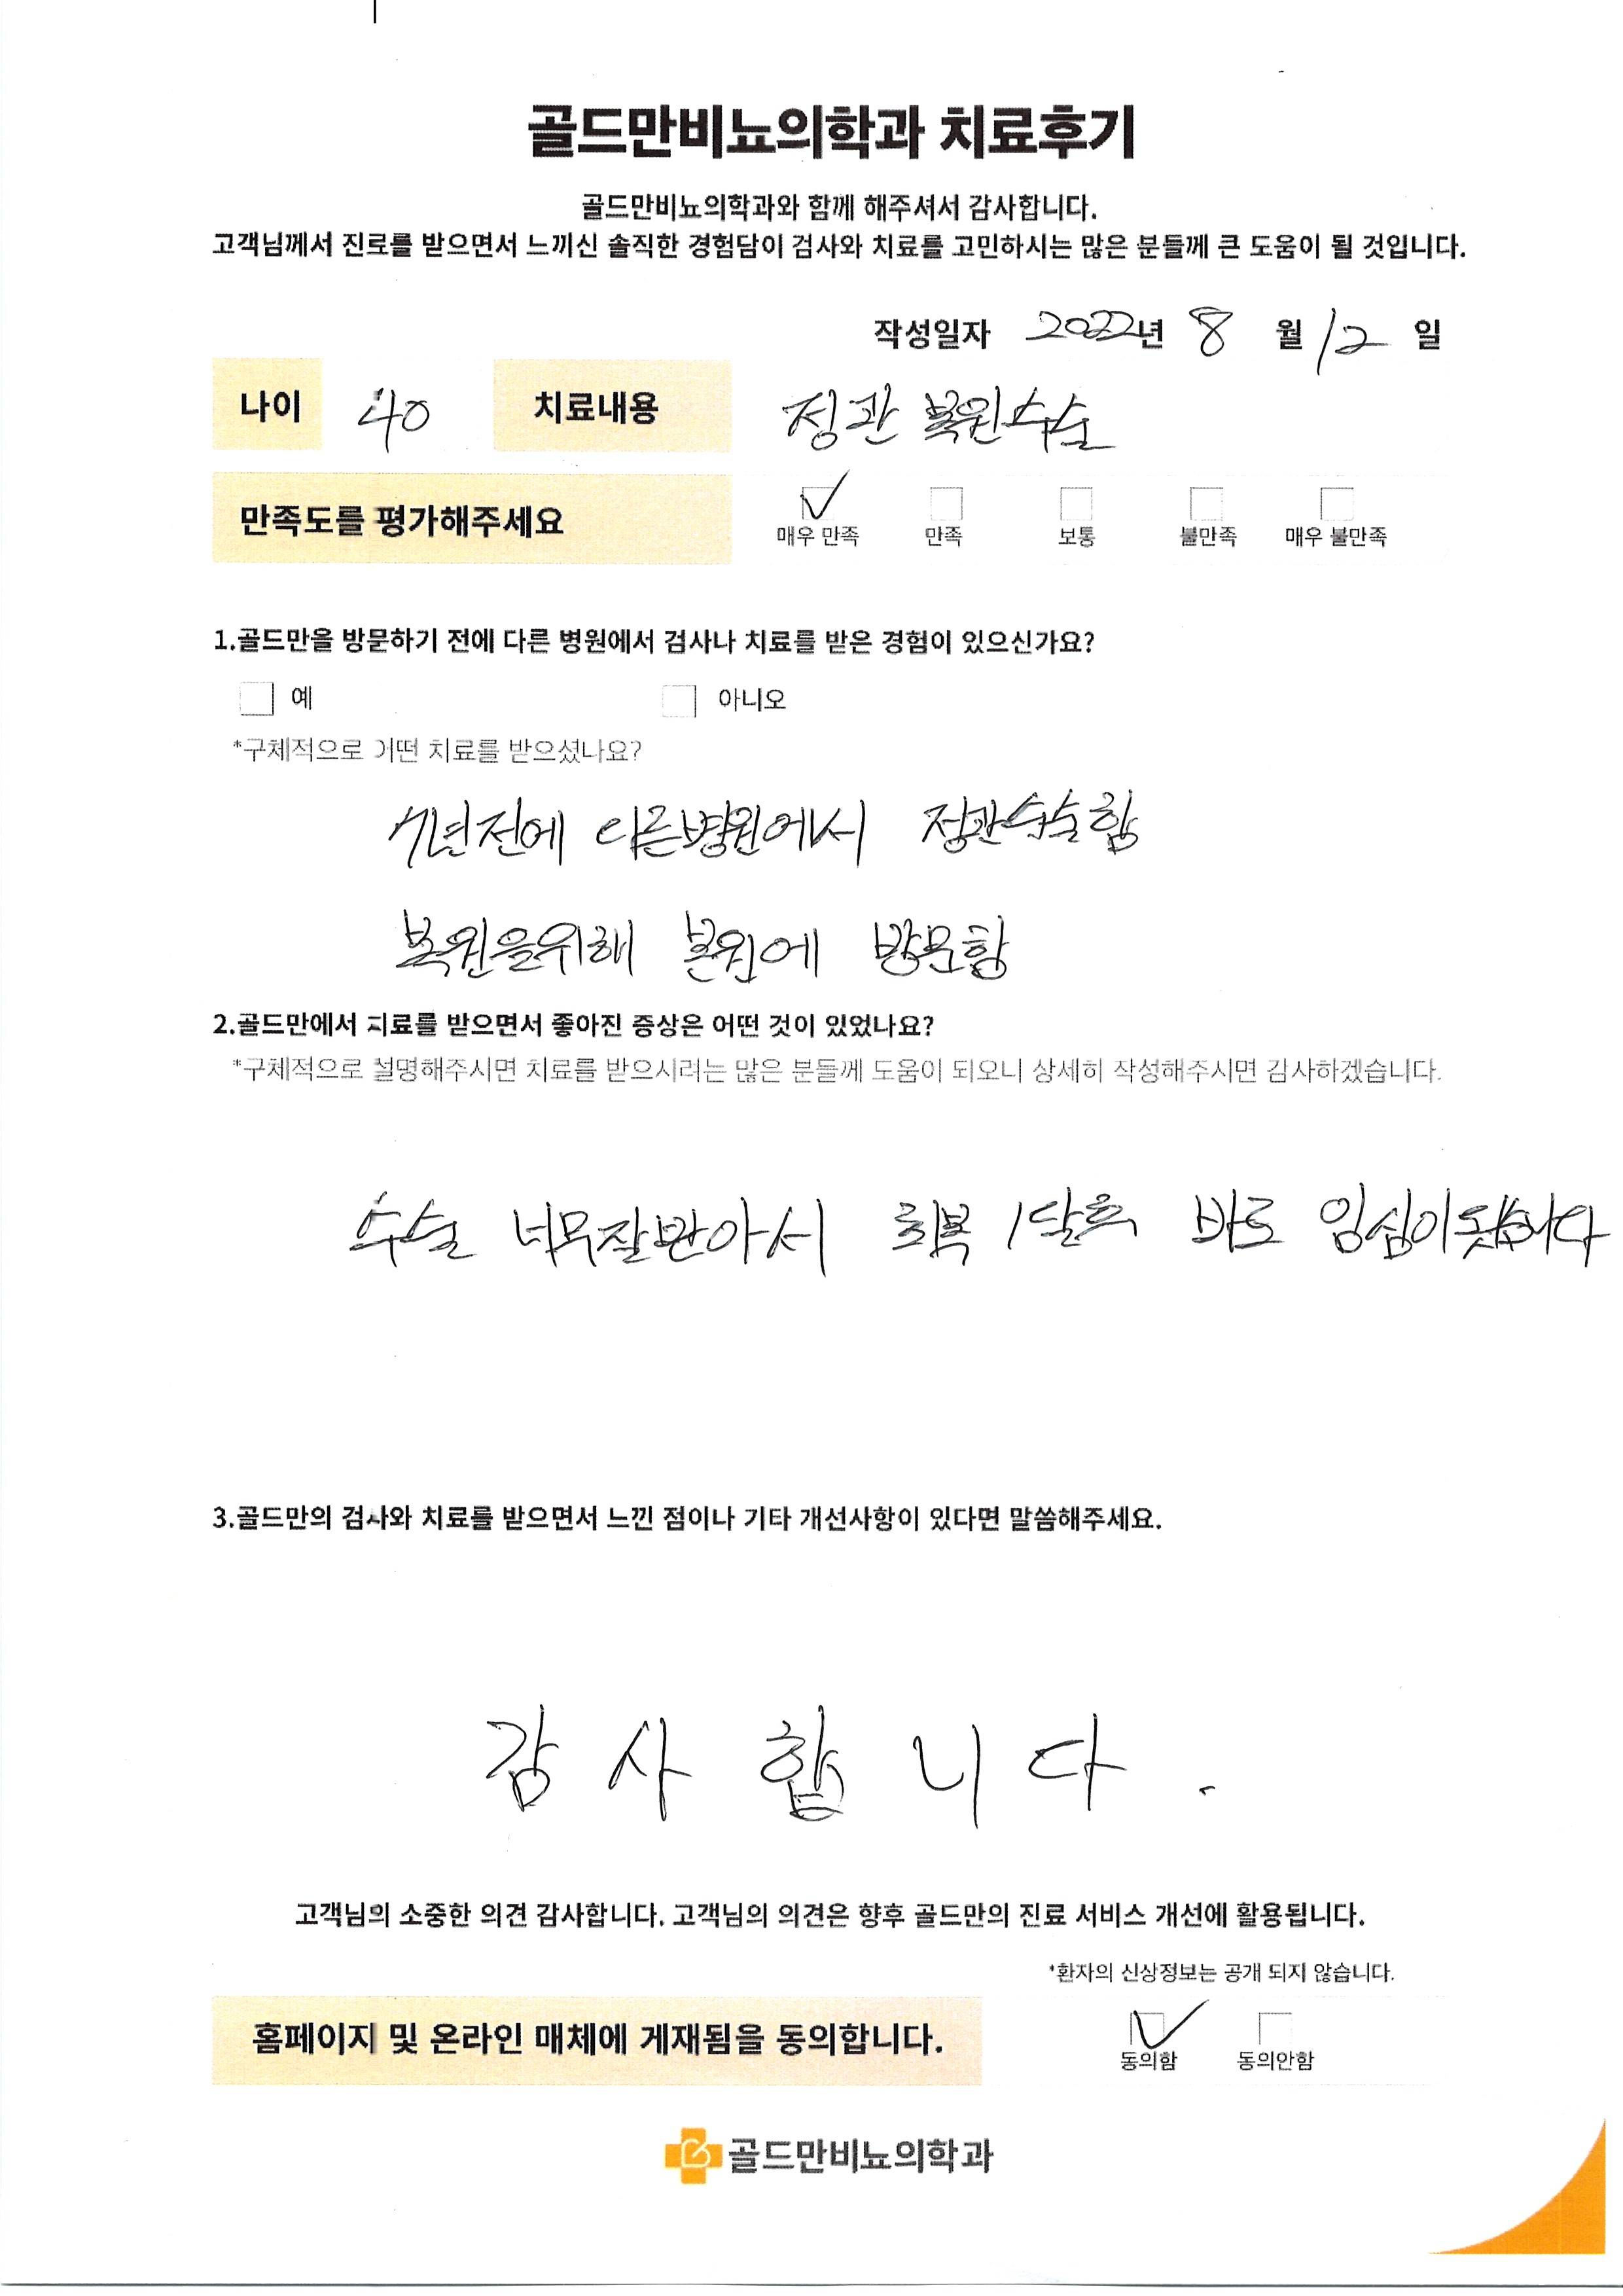 골드만비뇨의학과 치료후기
골드만비뇨의학과와 함께 해주셔서 감사합니다.
고객님께서 진료를 받으면서 느끼신 솔직한 경험담이 검사와 치료를 고민하시는 많은 분들께 큰 도움이 될 것입니다.
작성일자 2022년 8 월 12 일
나이 40 치료내용 정관 복원수술
만족도를 평가해주세요
매우 만족 만족 보통 불만족 매우 불만족
1.골드만을 방문하기 전에 다른 병원에서 검사나 치료를 받은 경험이 있으신가요?
예 아니오
*구체적으로 어떤 치료를 받으셨나요?
7년전에 다른병원에서 정관수술함
복원을위해 본원에 방문함
2.골드만에서 치료를 받으면서 좋아진 증상은 어떤 것이 있었나요?
*구체적으로 설명해주시면 치료를 받으시려는 많은 분들께 도움이 되오니 상세히 작성해주시면 감사하겠습니다.
수술 너무잘받아서 회복 1달후 바로 임심이됫습니다
3.골드만의 검사와 치료를 받으면서 느낀 점이나 기타 개선사항이 있다면 말씀해주세요.
감 사 합 니 다 .
고객님의 소중한 의견 감사합니다. 고객님의 의견은 향후 골드만의 진료 서비스 개선에 활용됩니다.
*환자의 신상정보는 공개 되지 않습니다.
홈페이지 및 온라인 매체에 게재됨을 동의합니다.
동의함 동의안함
골드만비뇨의학과